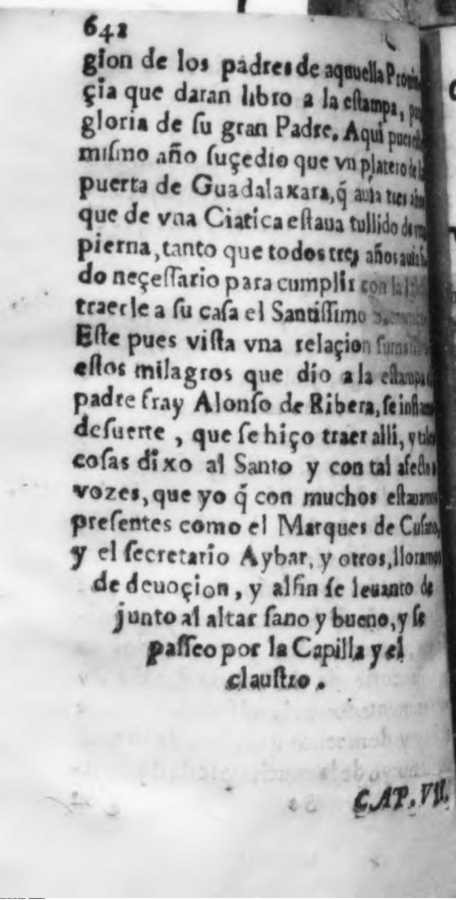 642
gion de los padres de aqnuella Provin
çia que daran libro a la eſtampa,
gloria de ſu gran Padre. Aqui pues
miſmo año ſuçedio que vn platero de la
puerta de Guadalaxara, q̃ auia tres años
que de vna Ciatica eſtaua tullido de vna
pierna, tanto que todos tres años auia ſi
do neçeſſario para cumplir con la
traerle a ſu caſa el Santiſſimo
Eſte pues viſta vna relaçion
eſtos milagros que dio a la eſtampa
padre fray Alonſo de Ribera, ſe
deſuerte, que ſe hiço traer alli, y tales
coſas dixo al Santo y con tal afecto
vozes, que yo q̃ con muchos eſtauamos
preſentes como el Marques de Cuſano,
y el ſecretario Aybar, y otros, lloramos
de deuoçion, y alfin ſe leuanto de
junto al altar ſano y bueno, y ſe
paſſeo por la Capilla y el
clauſtro.
CAP. VII.